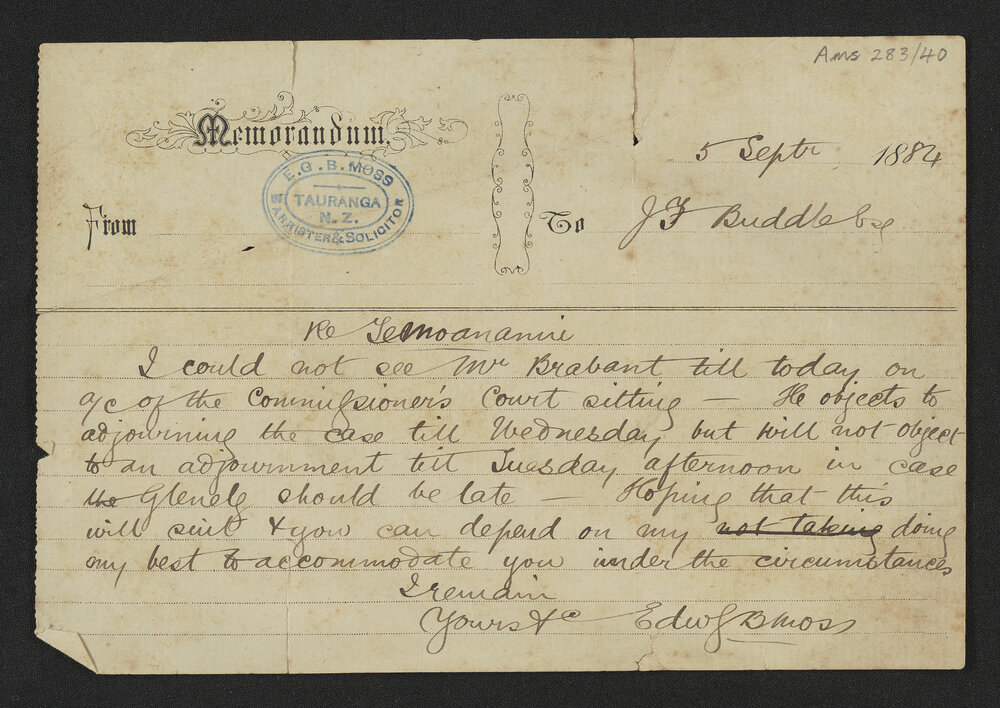 Ams 283/40
Memorandum.
5 Septr 1884
E.G.B. MOSS
TAURANGA
N.Z.
BARRISTER & SOLICITOR
From
To J F Buddle Esq
Re Temoananui
I could not see Mr Brabant till today on
a/c of the Commissioner's Court sitting — He objects to
adjourning the case till Wednesday but will not object
to an adjournment till Tuesday afternoon in case
the Glenelg should be late — Hoping that this
will suit & you can depend on my not taking doing
my best to accommodate you under the circumstances
I remain
Yours &c Edwd G B Moss